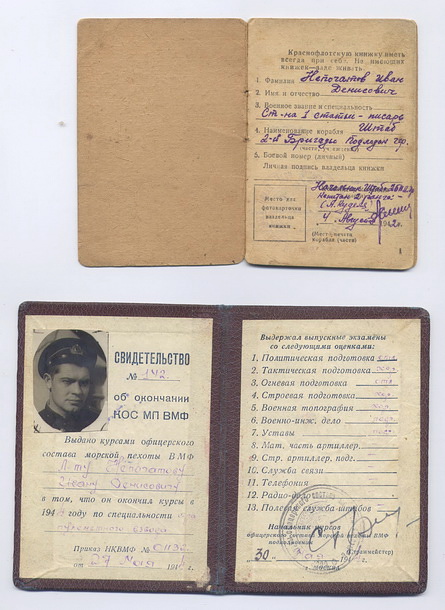 Краснофлотскую книжку иметь
всегда при себе. Не имеющих
книжек
1. Фамилия Непочатов Иван
2. Имя и отчество Денисович
3. Военное звание и специальность
Ст-на I статьи - писарь
4. Наименование корабля Штаб
2-й Бригады Подлодок
(части)
5. Боевой номер (личный)
Личная подпись владельца книжки
Место для
фотокарточки
владельца
книжки
Начальник Штаба
4 Августа
(Место печати
корабля (части)
СВИДЕТЕЛЬСТВО
№ 142
об окончании
КОС МП ВМФ
Выдано курсами офицерского
состава морской пехоты ВМФ
Л-ту Непочатову
Ивану Денисовичу
в том, что он окончил курсы в
194 году по специальности
взвода
Приказ НКВМФ №
от 27 мая 194
Выдержал выпускные экзамены
со следующими оценками:
1. Политическая подготовка
2. Тактическая подготовка хор.
3. Огневая подготовка
4. Строевая подготовка хор.
5. Военная топография хор.
6. Военно-инж. дело
7. Уставы
8. Мат. часть артиллер.
9. Стр. артиллер. подг.
10. Служба связи
11. Телефония
12. Радио-дело
13. Полевая служба штабов
Начальник курсов
офицерского состава морской пехоты ВМФ
подполковник
(Странмейстер)
"30" мая 194 г.
г. Москва